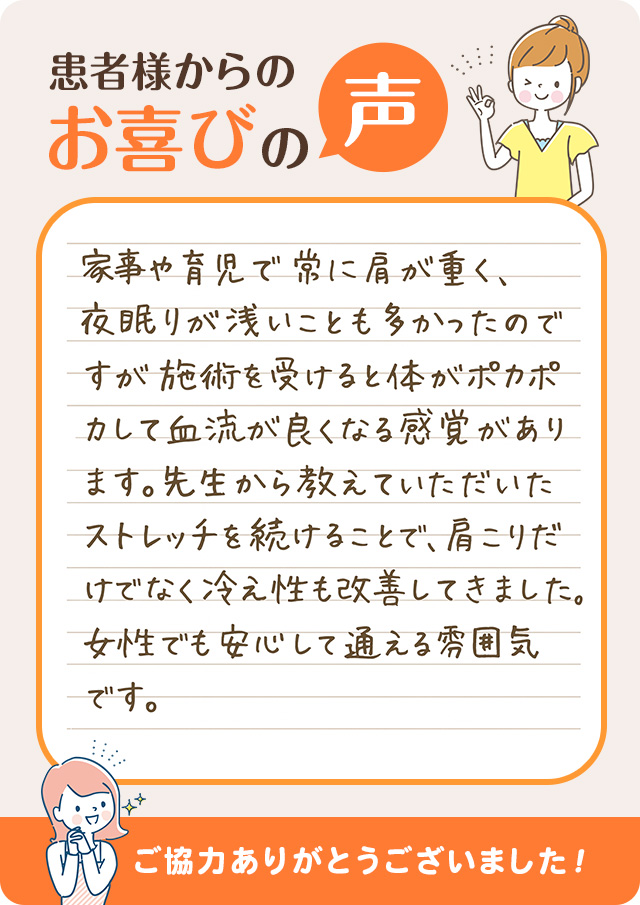 患者様からの
お喜びの声
家事や育児で常に肩が重く、
夜眠りが浅いことも多かったので
すが施術を受けると体がポカポ
カして血流が良くなる感覚があり
ます。先生から教えていただいた
ストレッチを続けることで、肩こりだ
けでなく冷え性も改善してきました。
女性でも安心して通える雰囲気
です。
ご協力ありがとうございました!